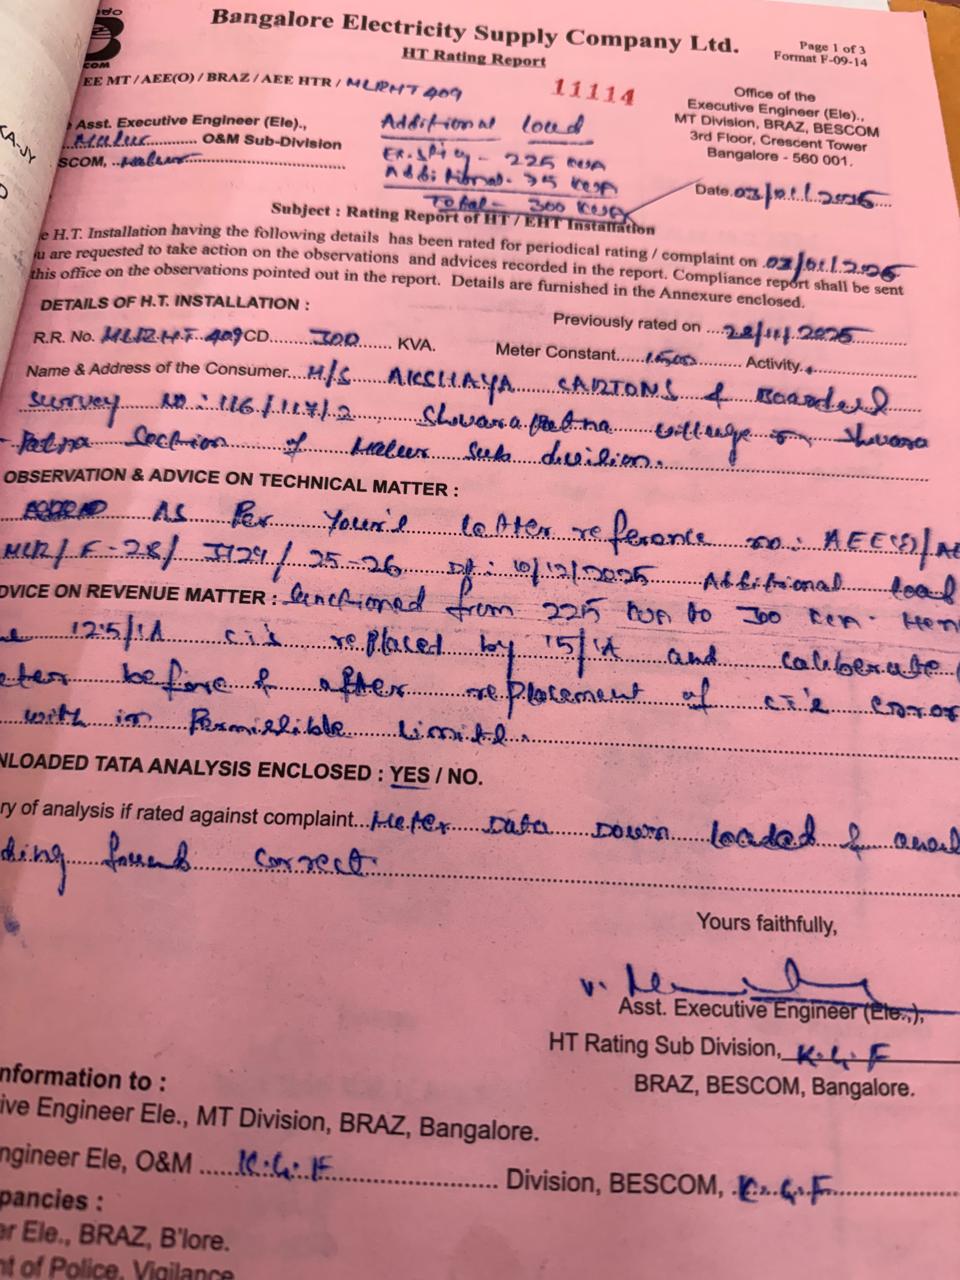 Bangalore Electricity Supply Company Ltd.
HT Rating Report
Page 1 of 3
Format F-09-14
EE MT / AEE(O) / BRAZ / AEE HTR / MLRHT 409
11114
Office of the
Executive Engineer (Ele).,
MT Division, BRAZ, BESCOM
3rd Floor, Crescent Tower
Bangalore - 560 001.
Asst. Executive Engineer (Ele).,
Malur O&M Sub-Division
SCOM, Malur
Additional load
Existing - 225 KVA
Additional - 75 KVA
Total - 300 KVA
Date. 03/01/2026
Subject : Rating Report of HT / EHT Installation
e H.T. Installation having the following details has been rated for periodical rating / complaint on 03/01/2026
u are requested to take action on the observations and advices recorded in the report. Compliance report shall be sent
this office on the observations pointed out in the report. Details are furnished in the Annexure enclosed.
DETAILS OF H.T. INSTALLATION :
Previously rated on 28/11/2025
R.R. No. MLRHT 409 CD 300 KVA. Meter Constant 1500 Activity
Name & Address of the Consumer M/S AKSHAYA CARTONS & Boarders
Survey no: 116/117/2 Shwarapatna village Shwara
Patna Section of Malur Sub division.
OBSERVATION & ADVICE ON TECHNICAL MATTER :
As Per Your's letter reference no: AEE(E)/AE
MLR/F-28/ /25-26 Dt: 10/12/2025 Additional load
DVICE ON REVENUE MATTER : Sanctioned from 225 KVA to 300 KVA. Hen
12.5/1A ct's replaced by 15/1A and caliberate
eter before & after replacement of ct's error
with in Permissible limits.
NLOADED TATA ANALYSIS ENCLOSED : YES / NO.
ry of analysis if rated against complaint Meter Data Down loaded & anal
ding found correct.
Yours faithfully,
Asst. Executive Engineer (Ele.,),
HT Rating Sub Division, K.G.F
BRAZ, BESCOM, Bangalore.
nformation to :
ive Engineer Ele., MT Division, BRAZ, Bangalore.
ngineer Ele, O&M K.G.F Division, BESCOM, K.G.F
pancies :
er Ele., BRAZ, B'lore.
nt of Police, Vigilance